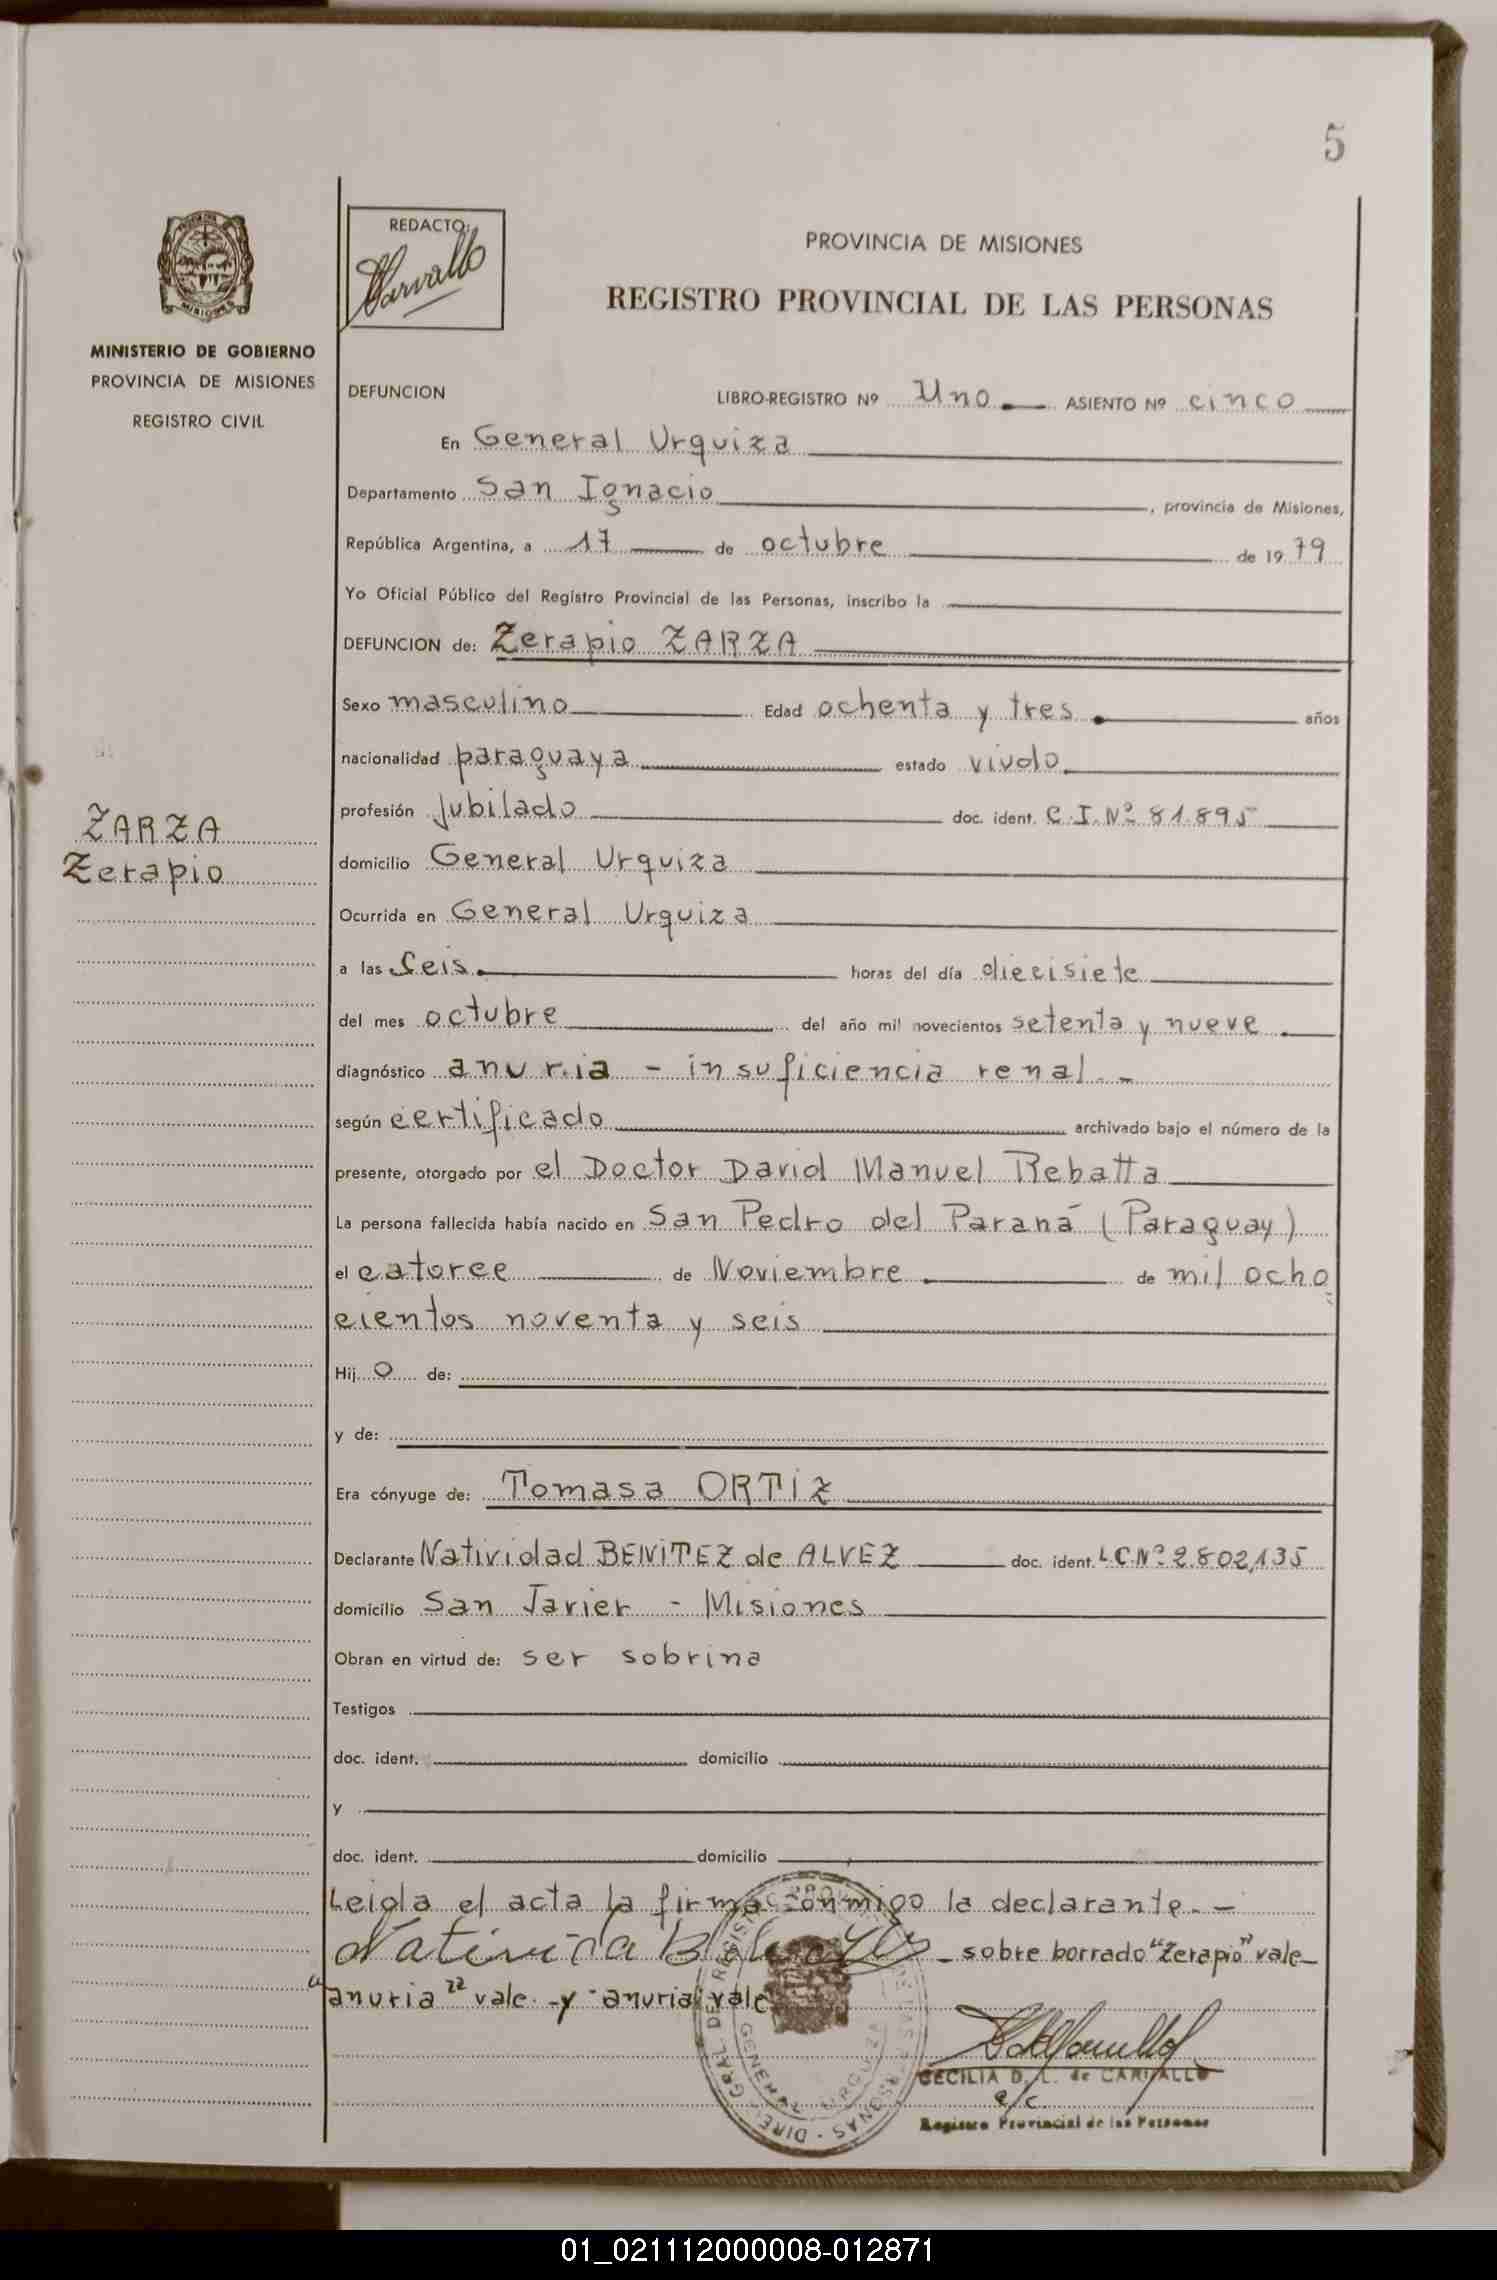 5
REDACTO:
Carvallo
PROVINCIA DE MISIONES
REGISTRO PROVINCIAL DE LAS PERSONAS
MINISTERIO DE GOBIERNO
PROVINCIA DE MISIONES
REGISTRO CIVIL
DEFUNCION LIBRO-REGISTRO Nº Uno ASIENTO Nº cinco
En General Urquiza
Departamento San Ignacio, provincia de Misiones,
República Argentina, a 17 de octubre de 1979
Yo Oficial Público del Registro Provincial de las Personas, inscribo la
DEFUNCION de: Zerapio ZARZA
Sexo masculino Edad ochenta y tres años
nacionalidad paraguaya estado viudo
ZARZA
Zerapio
profesión Jubilado doc. ident. C.I. Nº 81.895
domicilio General Urquiza
Ocurrida en General Urquiza
a las seis horas del día diecisiete
del mes octubre del año mil novecientos setenta y nueve
diagnóstico anuria - insuficiencia renal. -
según certificado archivado bajo el número de la
presente, otorgado por el Doctor David Manuel Rebatta
La persona fallecida había nacido en San Pedro del Paraná (Paraguay)
el catorce de Noviembre de mil ocho
cientos noventa y seis
Hijo de:
y de:
Era cónyuge de: Tomasa ORTIZ
Declarante Natividad BENITEZ de ALVEZ doc. ident. L.C.Nº 2.802,135
domicilio San Javier - Misiones
Obran en virtud de: ser sobrina
Testigos
doc. ident. domicilio
y
doc. ident. domicilio
Leida el acta la firma conmigo la declarante. -
- sobre borrado "Zerapio" vale-
"anuria" vale - y - anuria vale
GENERAL URQUIZA
CECILIA D. L. de CARVALLO
e/c.
Registro Provincial de las Personas
01_021112000008-012871